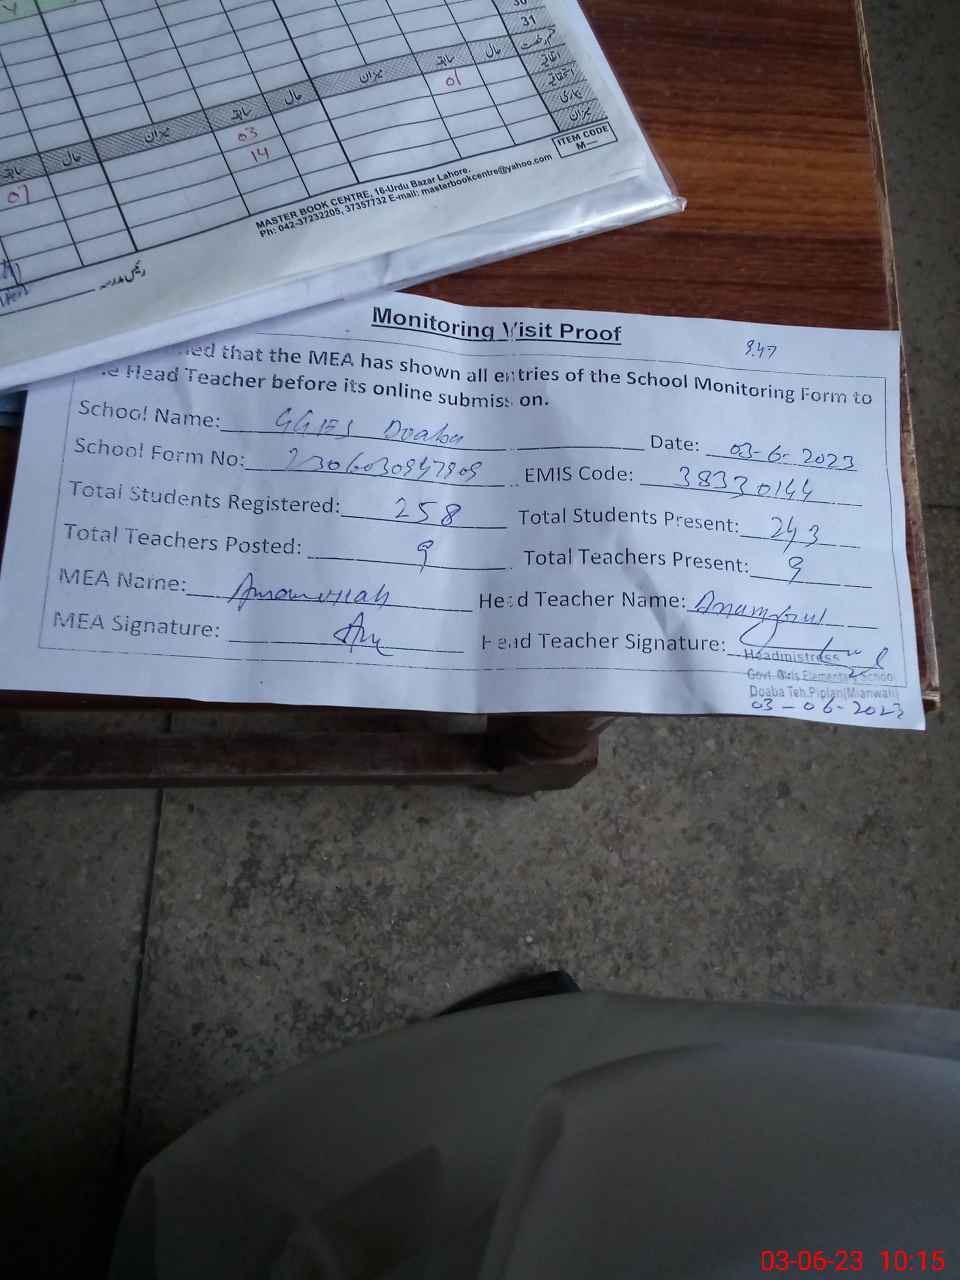 31
سابقہ حال میزان سابقہ حال میزان سابقہ حال
اتفاقیہ
بیماری
میزان
01
03
14
07
ITEM CODE
M—
MASTER BOOK CENTRE, 16-Urdu Bazar Lahore.
Ph: 042-37232205, 37357732 E-mail: masterbookcentre@yahoo.com
رئیس مدرسہ
Monitoring Visit Proof
9.47
that the MEA has shown all entries of the School Monitoring Form to
Head Teacher before its online submission.
School Name: GGES Doaba Date: 03-6-2023
School Form No: 2306030947909 EMIS Code: 38330144
Total Students Registered: 258 Total Students Present: 243
Total Teachers Posted: 9 Total Teachers Present: 9
MEA Name: Amanullah Head Teacher Name:
MEA Signature: Head Teacher Signature:
Headmistress
Govt. Girls Elementary School
Doaba Teh.Piplan(Mianwali)
03-06-2023
03-06-23 10:15